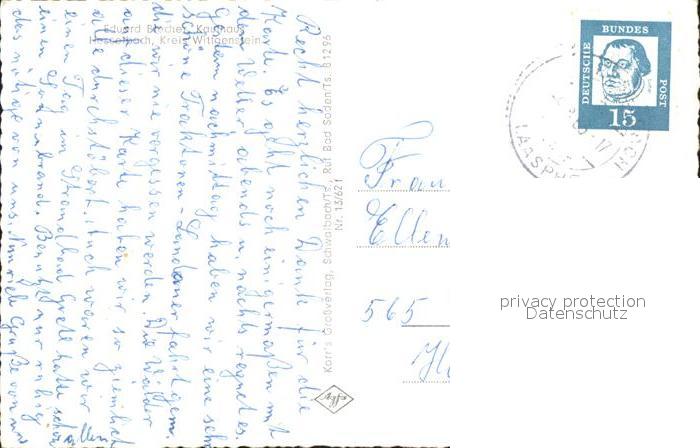 Eduard Blecher, Kaufhaus
Hesselbach, Kreis Wittgenstein
Recht herzlichen Dank für die
Karte. Es geht noch einigermaßen mit
dem Wetter abends u. nachts regnet es.
Gestern nachmittag haben wir eine sehr
schöne Traktoren-Landauerfahrt gem.
die wir nie vergessen werden. Die Wälder
auf dieser Karte haben wir so ziemlich
alle durchstöbert. Auch waren wir
einen Tag im Strandbad Grete hatte schon
einen Sonnenbrand.
das nötige von uns.
allen
Karr's Großverlag, Schwalbach/Ts. Ruf Bad Soden/Ts. 81296
Nr. 13/621
Frau
Ellen
565
DEUTSCHE
BUNDES
POST
15
LAASPHE
privacy protection
Datenschutz